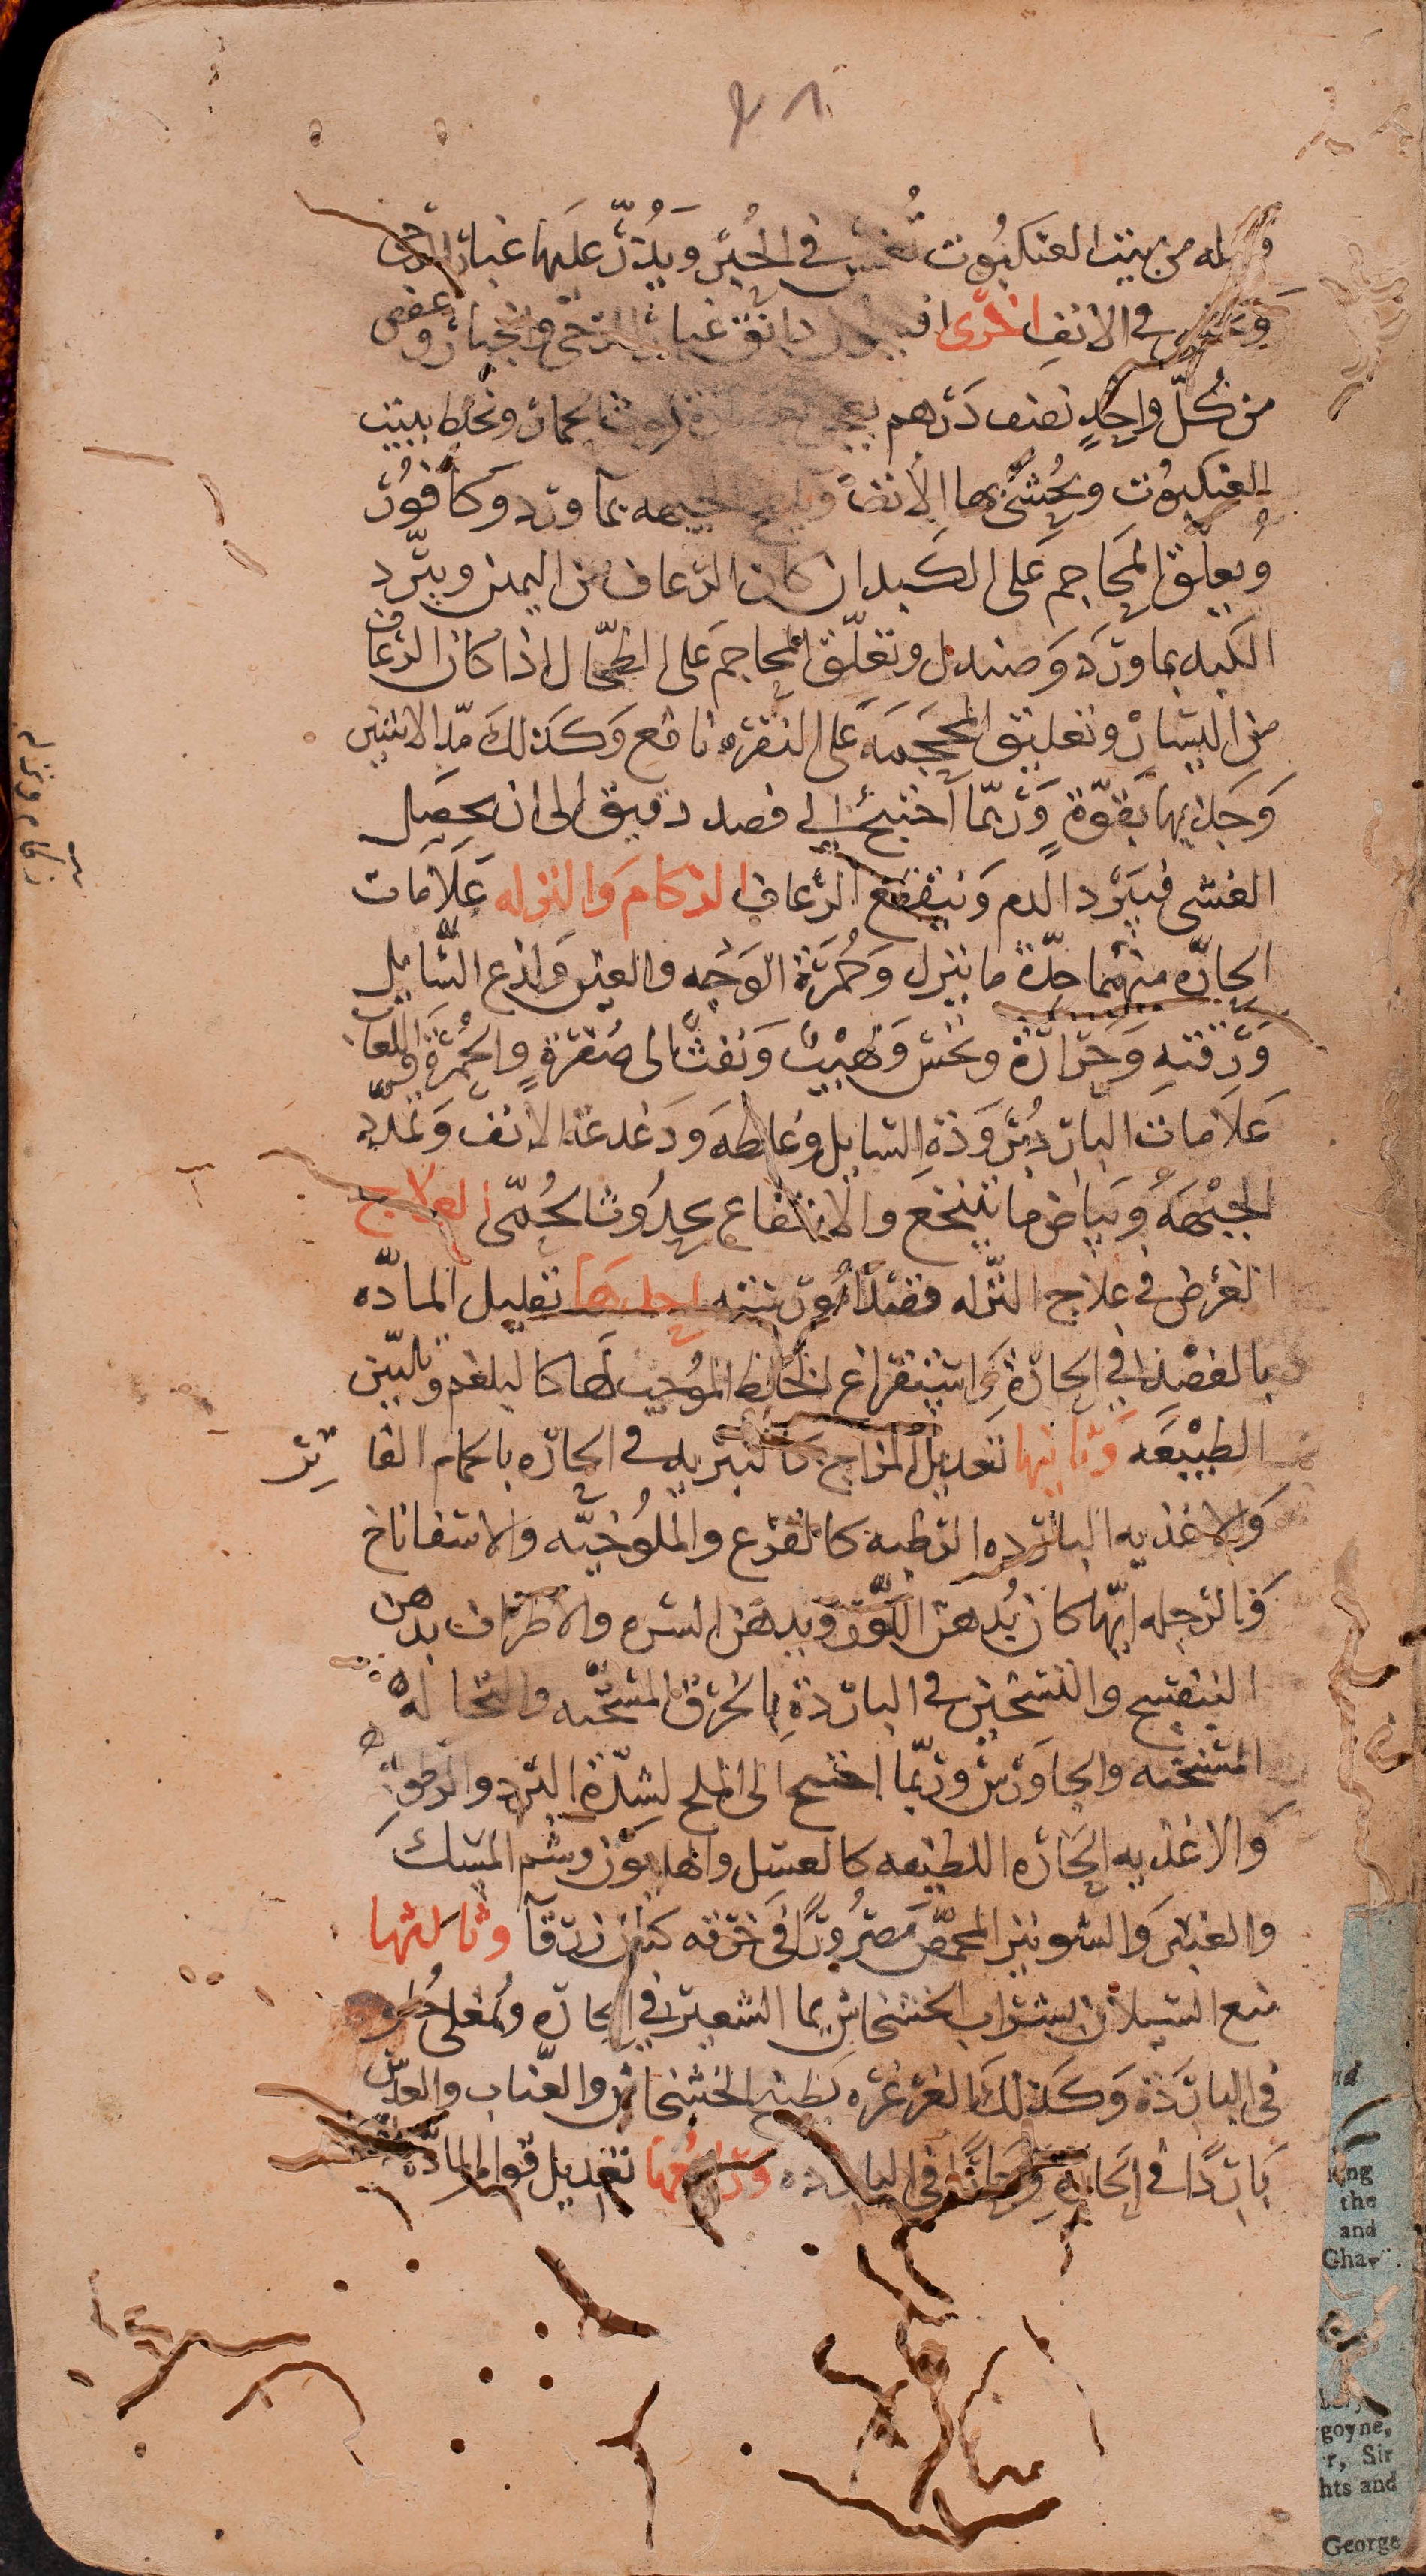 ٤٨
فتيله من بيت العنكبوت تُغمس في الحِبر وَيُذَرّ عليها غبار الرحى
في الانفِ اخرى افيون دانق غبار الرحى وجلنار وعفص
من كُلّ واحِدٍ نصف دَرهم يعجن روث الحمار ونخلط ببيت
العنكبوت ويُحشى بها الأنف الجبهه بماورد وكافور
وُيعلّق المحاجم على الكبد ان كان الرعاف من اليمين ويبرّد
الكبد بماورد وَصندل وتعلّق المحاجم على الطحال اذا كان الرعاف
من اليسار وتعليق المحجمه على النقره نافع وَكذلك مدّ الانثيين
وَجذبها بقوّةٍ وَربّما احتيج الى فصد دقيق الى ان يحصل
الغشى فيبرد الدم وَينقطع الرعاف الزكام والنزله عَلامَات
الحارّه منهما حِدّة ما ينزل وَحُمرَة الوَجه والعين وَلذع السّايل
وَرقتهِ وَحرارة ونخس وَلهيب وَنفث الى صُفرةٍ وَالحُمرة واللعاب
عَلامات البارد بُروَدة السايل وغلظه وَدغدغة الانف وَتمدّد
الجبهَه وَبيَاض ما يتنخع والانتفاع بحدُوث الحُمّى العلاج
الغرض في علاج النّزله قصد امُور ستّه احدها تقليل المادّه
بالفَصْد في الحارّة وَاستفراغ الخلط الموُجب لَها كالبلغم وتليّين
الطبيْعَه وَثانيها تعديل المزاج كالتبريد في الحارّه بالحمام الفاتر
وَالاغذيه البارده الرطبه كالقرع والملُوخيّه والاسفاناخ
وَالرجله ايّها كان بُدهن اللّوز وَيدهن السره والاطراف بدهن
البنفسج والتسخين في البارِدَةِ بالخرق المسخّنه والنخاله
المسخّنه والجاوَرس وربّما احتيج الى الملح لشدّة البرد والرطوبة
وَالاغذيه الحَاره اللطيفه كالعسل والهليوَن وشم المسك
والعنبَر وَالشونيز المحمّص مَصرُورًا في خرقه كتان زرقآ وثالثها
منع السيلان بشراب الخشخاش بما الشعير في الحارّه وَمُغلى حُلو
في البارَدة وَكذلكَ الغرغره بطبيخ الخشخاش والعناب والعدس
بَاردًا في الحارّةِ وَحَارًّا في البارده وَرابعُها تعديل قوام المادّة